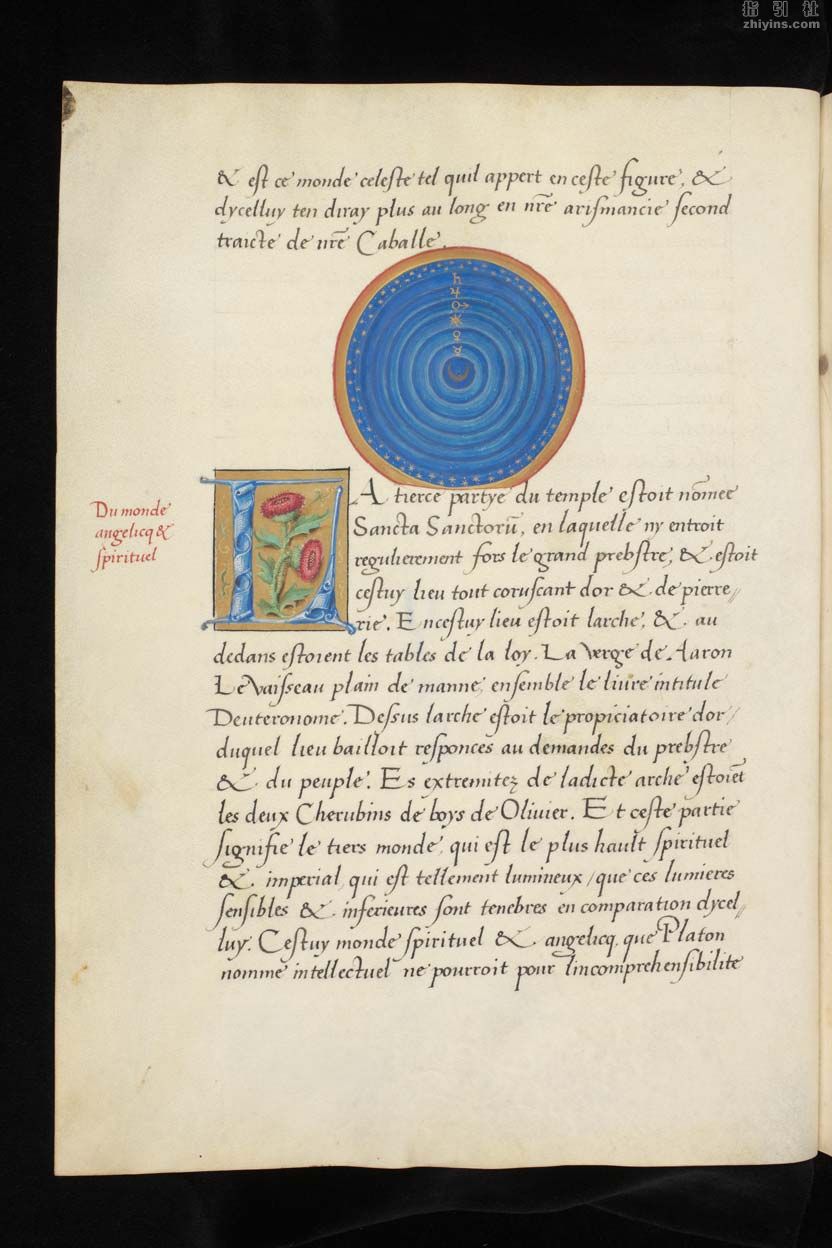 指引社
zhiyins.com
& est ce monde celeste tel quil appert en ceste figure, &
dycelluy ten diray plus au long en nr̄e arismancie second
traicte de nr̄e Caballe.
♄
♃
♂
☀
♀
☿
☾
Du monde
angelicq &
spirituel
LA tierce partye du temple estoit nōmee
Sancta Sanctorū, en laquelle ny entroit
regulierement fors le grand prebstre, & estoit
cestuy lieu tout coruscant dor & de pierre,,
rie. En cestuy lieu estoit larche, & au
dedans estoient les tables de la loy. La verge de Aaron
Le vaisseau plain de manne, ensemble le liure intitule
Deuteronome. Dessus larche estoit le propiciatoire dor/
duquel lieu bailloit responces au demandes du prebstre
& du peuple. Es extremitez de ladicte arche estoiēt
les deux Cherubins de boys de Olivier. Et ceste partie
signifie le tiers monde, qui est le plus hault spirituel
& imperial, qui est tellement lumineux/que ces lumieres
sensibles & inferieures sont tenebres en comparation dycel,,
luy. Cestuy monde spirituel & angelicq, que Platon
nomme intellectuel ne pourroit pour lincomprehensibilite